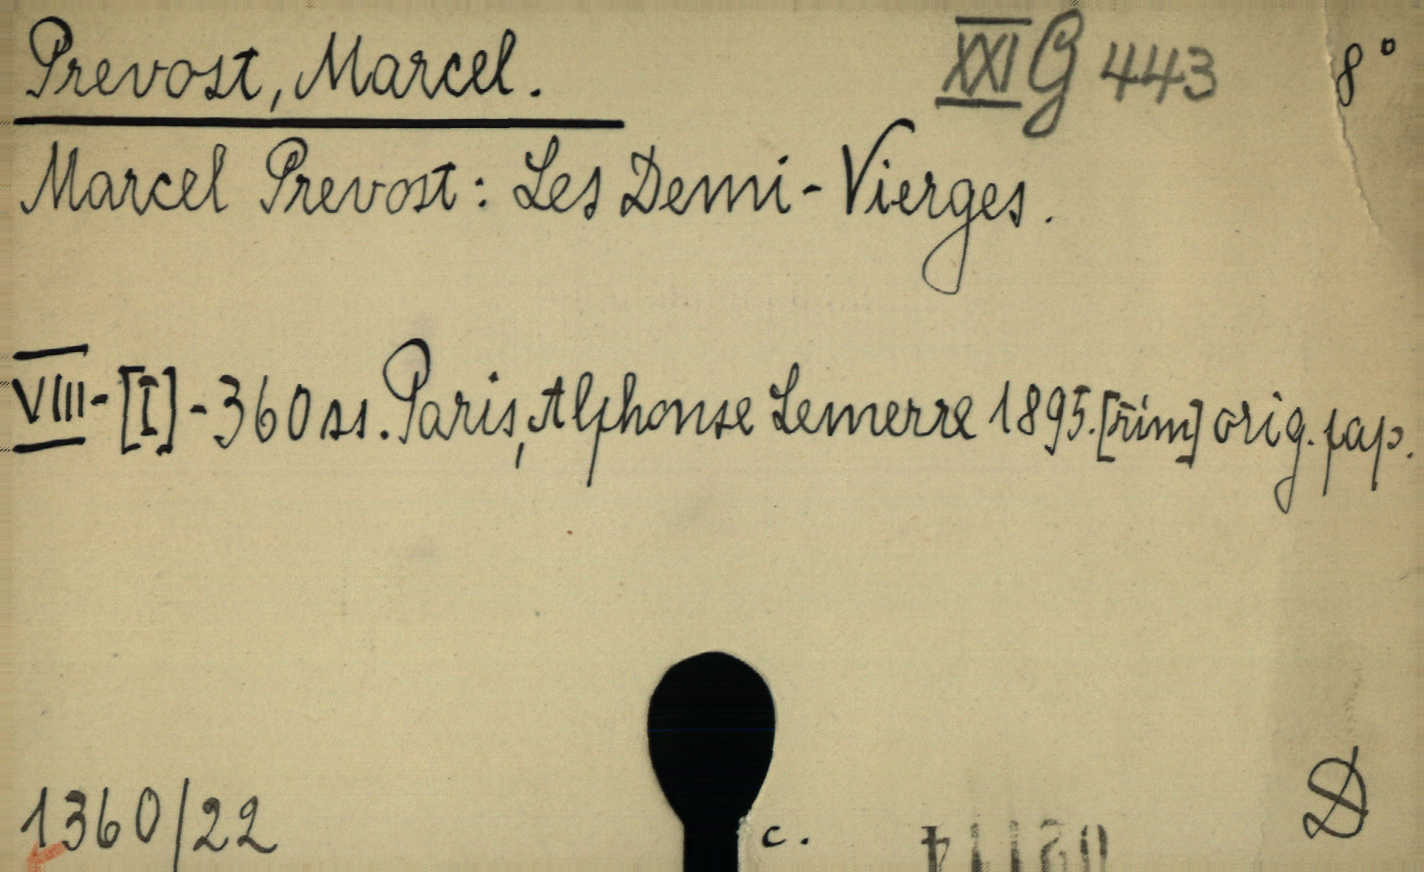 Prevost, Marcel.
XXI G 443
8°
Marcel Prevost: Les Demi-Vierges.
VIII-[I]-360 ss. Paris, Alphonse Lemerre 1895. [řím] orig. pap.
1360/22
c.
D